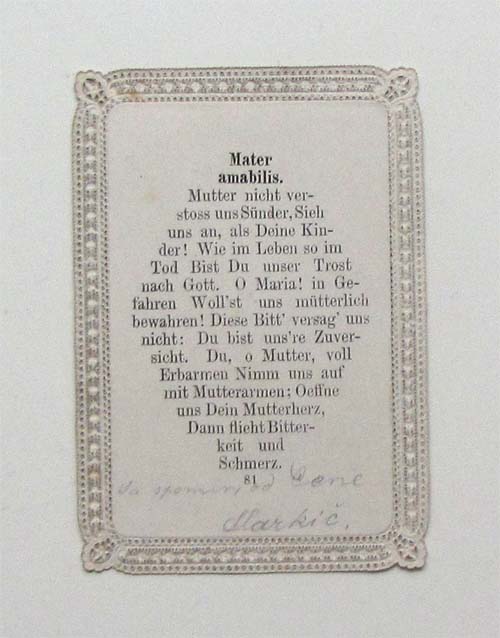 Mater
amabilis.
Mutter nicht ver-
stoss uns Sünder, Sieh
uns an, als Deine Kin-
der! Wie im Leben so im
Tod Bist Du unser Trost
nach Gott. O Maria! in Ge-
fahren Woll'st uns mütterlich
bewahren! Diese Bitt' versag' uns
nicht: Du bist uns're Zuver-
sicht. Du, o Mutter, voll
Erbarmen Nimm uns auf
mit Mutterarmen; Oeffne
uns Dein Mutterherz,
Dann flieht Bitter-
keit und
Schmerz.
81
spomin od
Markič.